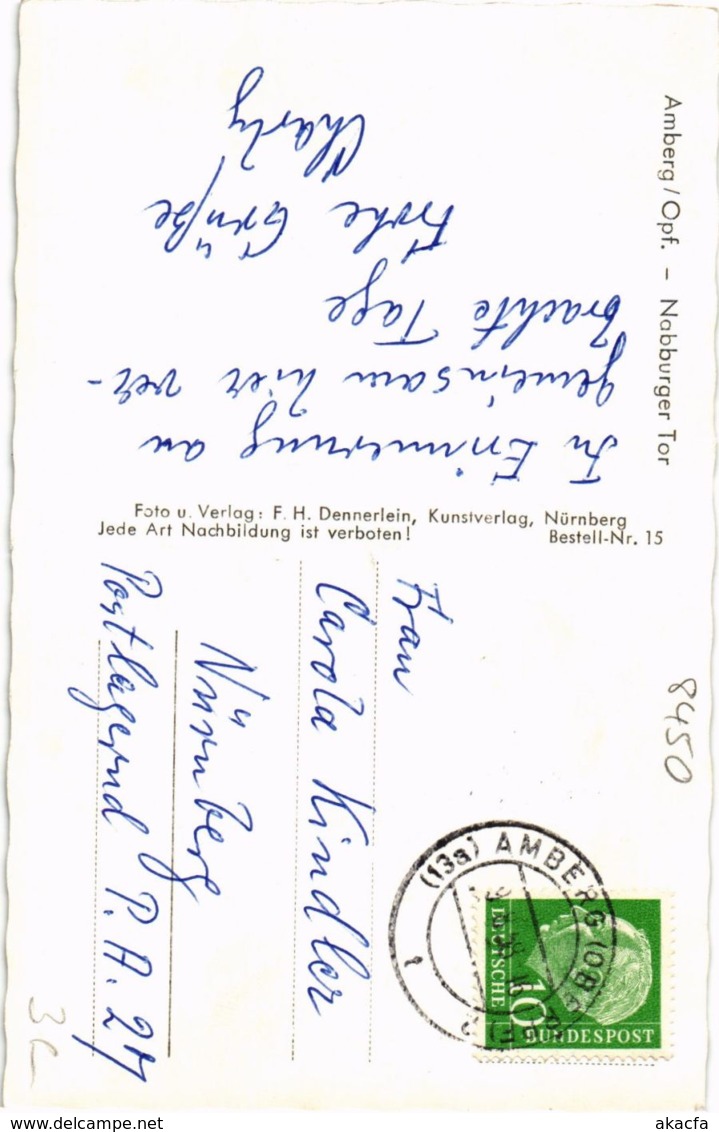 Amberg/Opf. – Nabburger Tor
In Erinnerung an
gemeinsam hier ver-
brachte Tage
Frohe Grüße
Charly
Foto u. Verlag: F. H. Dennerlein, Kunstverlag, Nürnberg
Jede Art Nachbildung ist verboten! Bestell-Nr. 15
Frau
Carola Kindler
Nürnberg
Postlagernd P. A. 27
8450
3c
(13a) AMBERG (OBERPF) 2
DEUTSCHE
BUNDESPOST
10
akacfa
www.delcampe.net